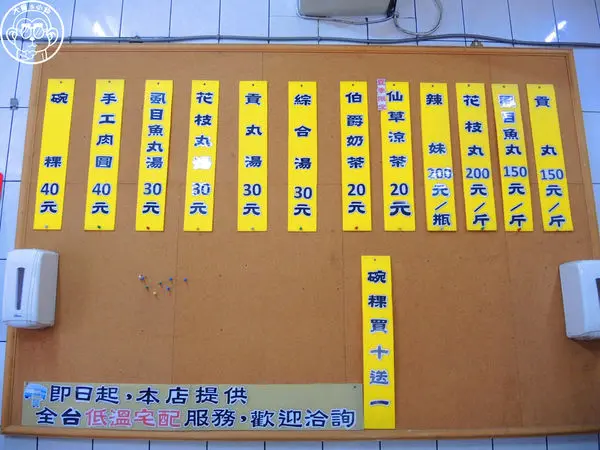 碗粿40元
手工肉圓40元
虱目魚丸湯30元
花枝丸湯30元
貢丸湯30元
綜合湯30元
伯爵奶茶20元
仙草涼茶20元
辣妹200元/瓶
花枝丸200元/斤
虱目魚丸150元/斤
貢丸150元/斤
碗粿買十送一
即日起，本店提供
全台低溫宅配服務，歡迎洽詢